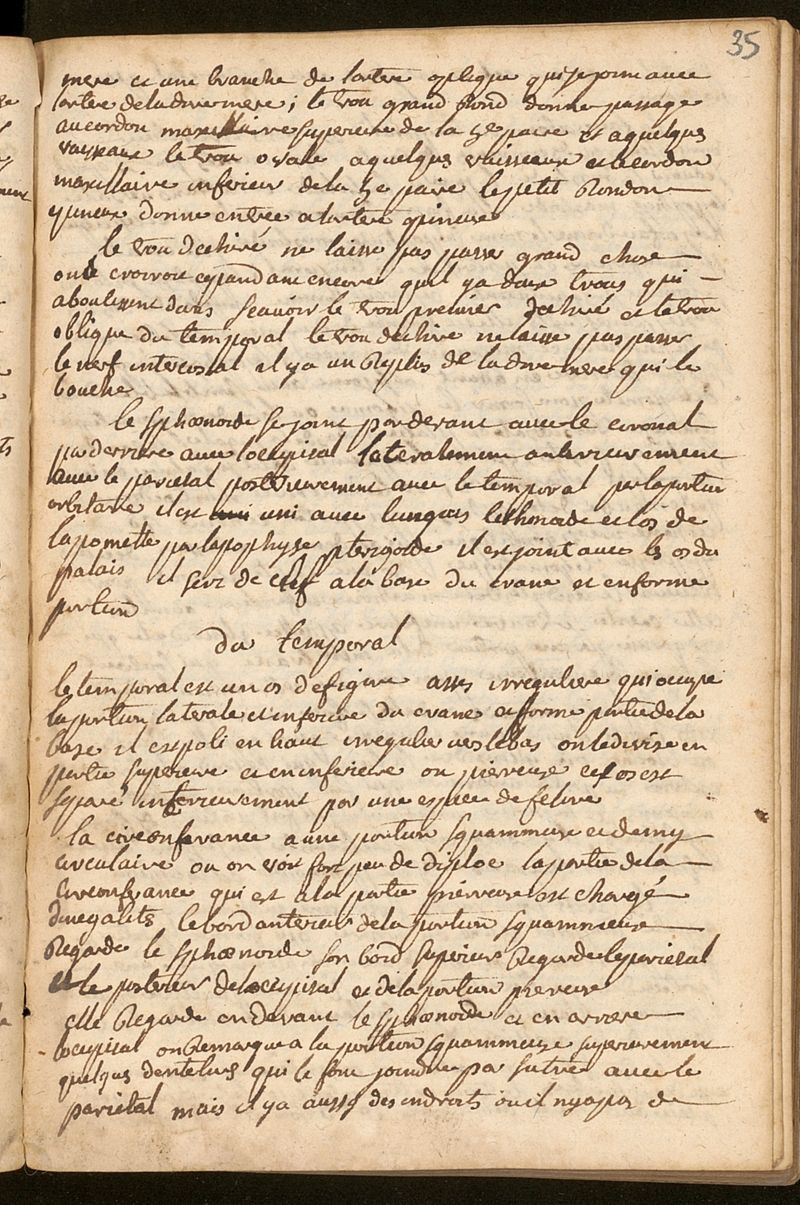 35
mere et une branche de lartere optique qui se joint avec
lartere de la dure mere; le trou grand rond donne passage
au cordon maxillaire superieure de la 5e paire et a quelques
vaisseaux le trou ovale a quelques vaisseaux et au cordon
maxillaire inferieur de la 5e paire le petit Rondon
epineux donne entrée a lartere epineuse
le trou dechiré ne laisse pas passer grand chose
on croiroit cependant encore quil ya deux trous qui
aboutissent dans scavoir le trou premier dechiré et le trou
oblique du temporal le trou dechire ne laisse pas passer
le nerf intercostal il ya un Replis de la dure mere qui le
bouche
le sphœnoide se joint par devant avec le coronal
par derriere avec loccipital lateralement anterieurement
avec le parietal posterieurement avec le temporal par la portion
orbitaire il est uni avec lunguis lethmoide et los de
la pomette par lapophyse pterigoide il est joint avec les os du
palais il sert de clef a la base du crane et en forme
portion
du temporal
le temporal est un os de figure asses irreguliere qui occupe
la portion laterale et inferieure du crane et forme partie de la
base il est poli en haut irregulier vers le bas on le divise en
partie superieure et en inferieure ou pierreuse cet os est
separé interieurement par une espece de felure
la circonferance a une portion squammeuse et demy
circulaire ou on voit fort peu de diploe la partie de la
circonferance qui est a la partie pierreuse est chargé
dinegalités le bord anterieur de la portion squammeuse
Regarde le sphœnoide son bord superieur Regarde le parietal
et le posterieur de loccipital et de la portion pierreuse
elle Regarde en devant le sphœnoide et en arriere
loccipital on Remarque a la portion squammeuse superieurement
quelques dentelures qui le font joindre par suture avec le
parietal mais il ya aussy des endroits ou il nya pas de